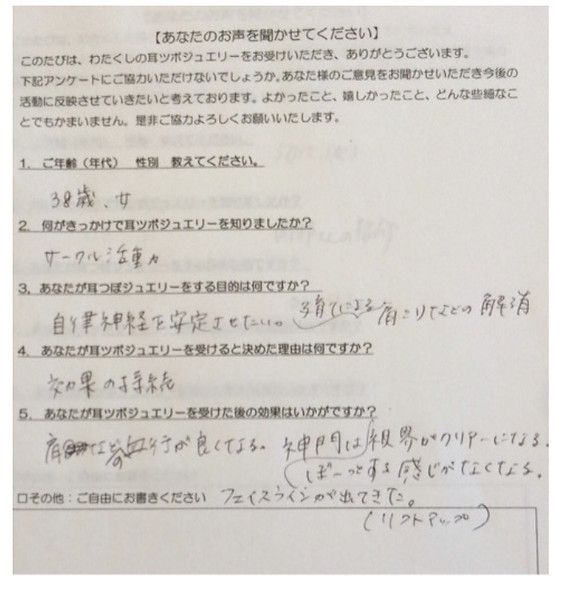 【あなたのお声を聞かせてください】
このたびは、わたくしの耳ツボジュエリーをお受けいただき、ありがとうございます。
下記アンケートにご協力いただけないでしょうか。あなた様のご意見をお聞かせいただき今後の
活動に反映させていきたいと考えております。よかったこと、嬉しかったこと、どんな些細なこ
とでもかまいません。是非ご協力よろしくお願いいたします。
1. ご年齢（年代） 性別 教えてください。
38歳、女
2. 何がきっかけで耳ツボジュエリーを知りましたか？
サークル活動
3. あなたが耳つぼジュエリーをする目的は何ですか？
自律神経を安定させたい。 子育てによる 肩こりなどの解消
4. あなたが耳ツボジュエリーを受けると決めた理由は何ですか？
効果の持続
5. あなたが耳ツボジュエリーを受けた後の効果はいかがですか？
肩などの血行が良くなる。 神門は視界がクリアーになる。
ぼーっとする感じがなくなる。
□その他：ご自由にお書きください フェイスラインが出てきた。
（リフトアップ）